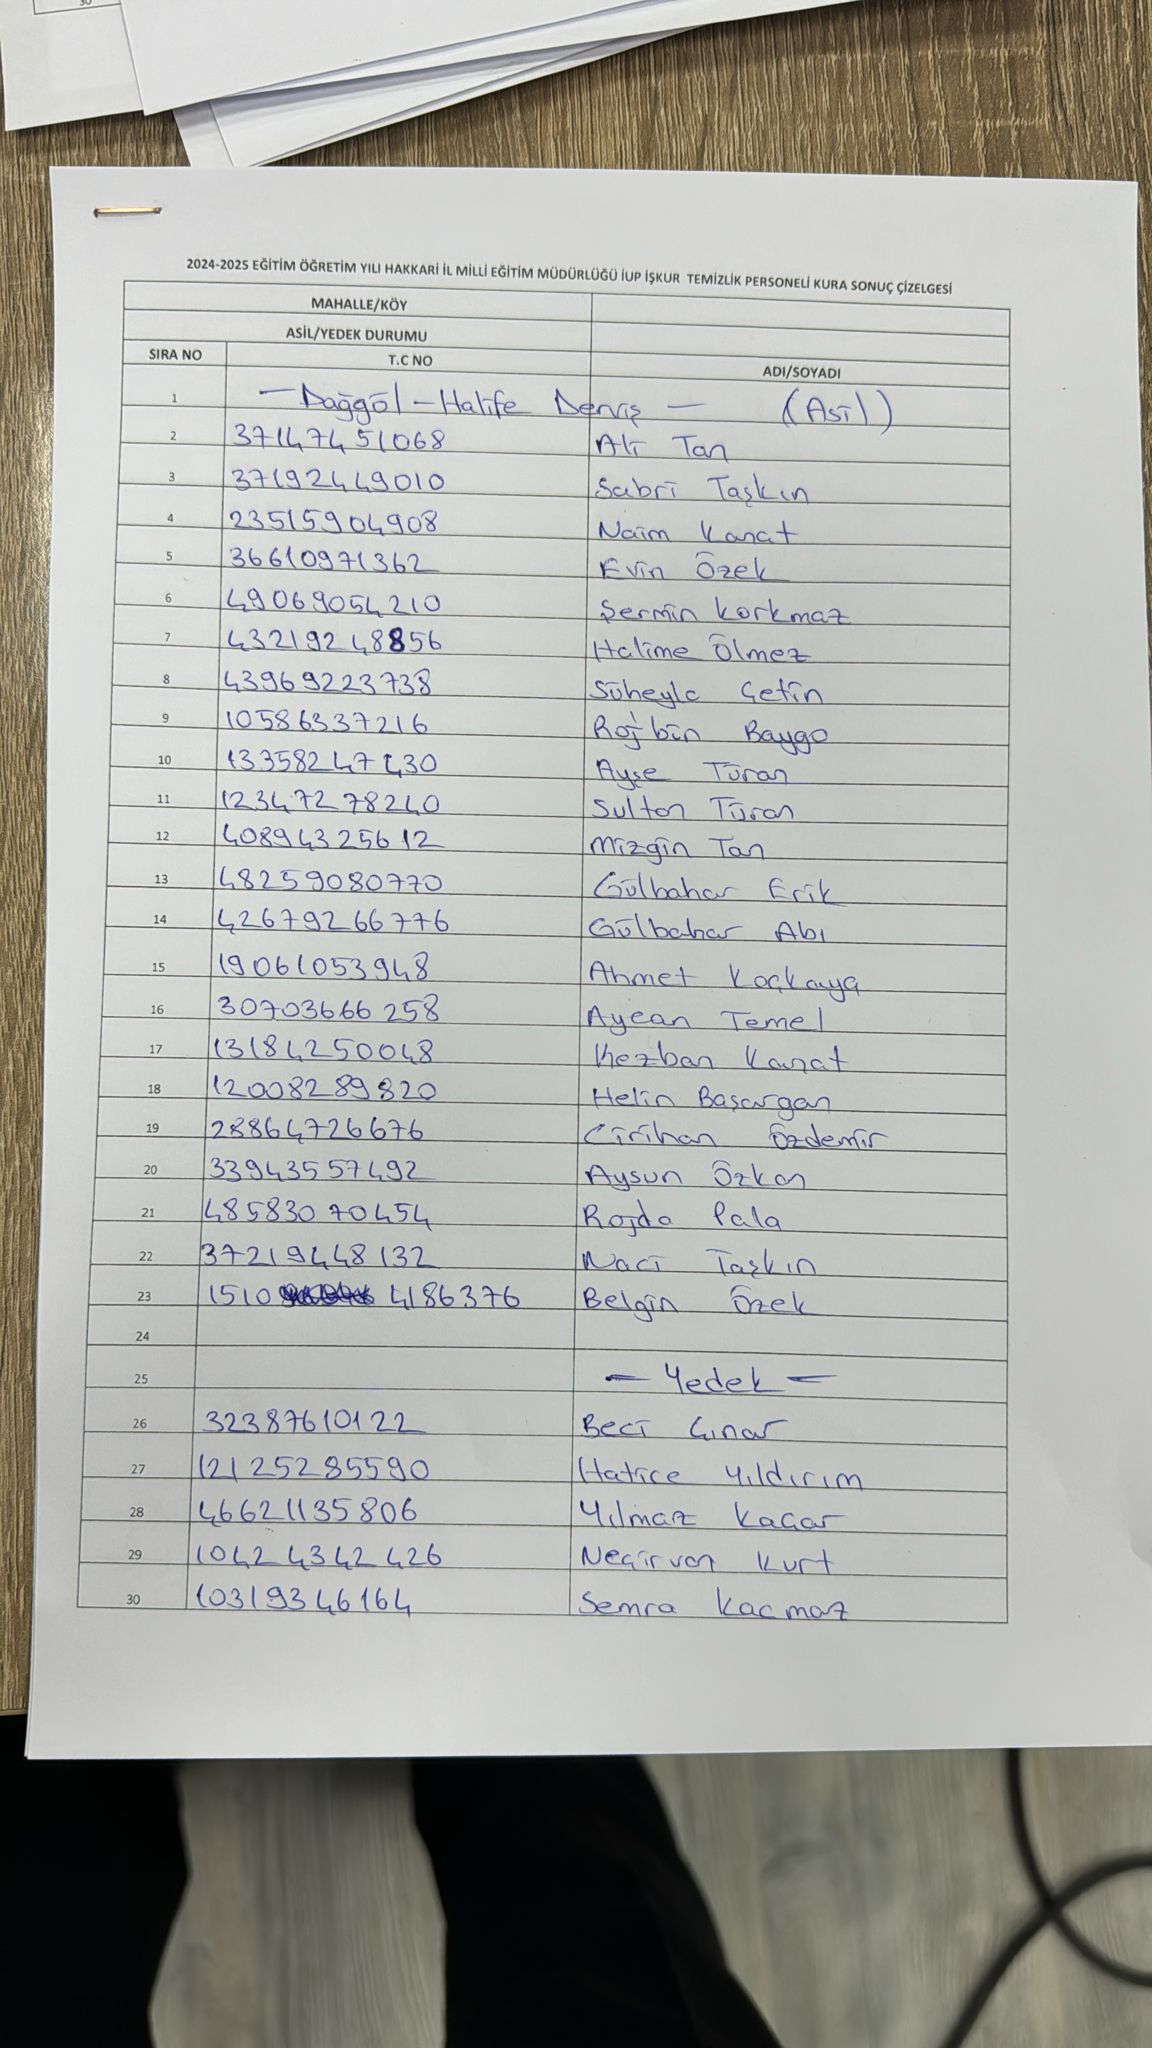 30
2024-2025 EĞİTİM ÖĞRETİM YILI HAKKARİ İL MİLLİ EĞİTİM MÜDÜRLÜĞÜ İUP İŞKUR TEMİZLİK PERSONELİ KURA SONUÇ ÇİZELGESİ
MAHALLE/KÖY
ASİL/YEDEK DURUMU
SIRA NO T.C NO ADI/SOYADI
1 — Dağgöl - Halife Derviş — (Asil)
2 37147451068 Ali Tan
3 37192449010 Sabri Taşkın
4 23515904908 Naim Kanat
5 36610971362 Evin Özek
6 49069054210 Şermin Korkmaz
7 43219248856 Halime Ölmez
8 43969223738 Süheyla Çetin
9 10586337216 Rojbin Baygo
10 13358247430 Ayşe Turan
11 12347278240 Sultan Turan
12 40894325612 Mizgin Tan
13 48259080770 Gülbahar Erik
14 42679266776 Gülbahar Abı
15 19061053948 Ahmet Koçkaya
16 30703666258 Aycan Temel
17 13184250048 Kezban Kanat
18 12008289820 Helin Başargan
19 28864726676 Cirihan Özdemir
20 33943557492 Aysun Özkan
21 48583070454 Rojda Pala
22 37219448132 Naci Taşkın
23 1510 4186376 Belgin Özek
24
25 — Yedek —
26 32387610122 Beci Çınar
27 12125285590 Hatice Yıldırım
28 46621135806 Yılmaz Kaçar
29 10424342426 Neçirvan Kurt
30 10319346164 Semra Kaçmaz